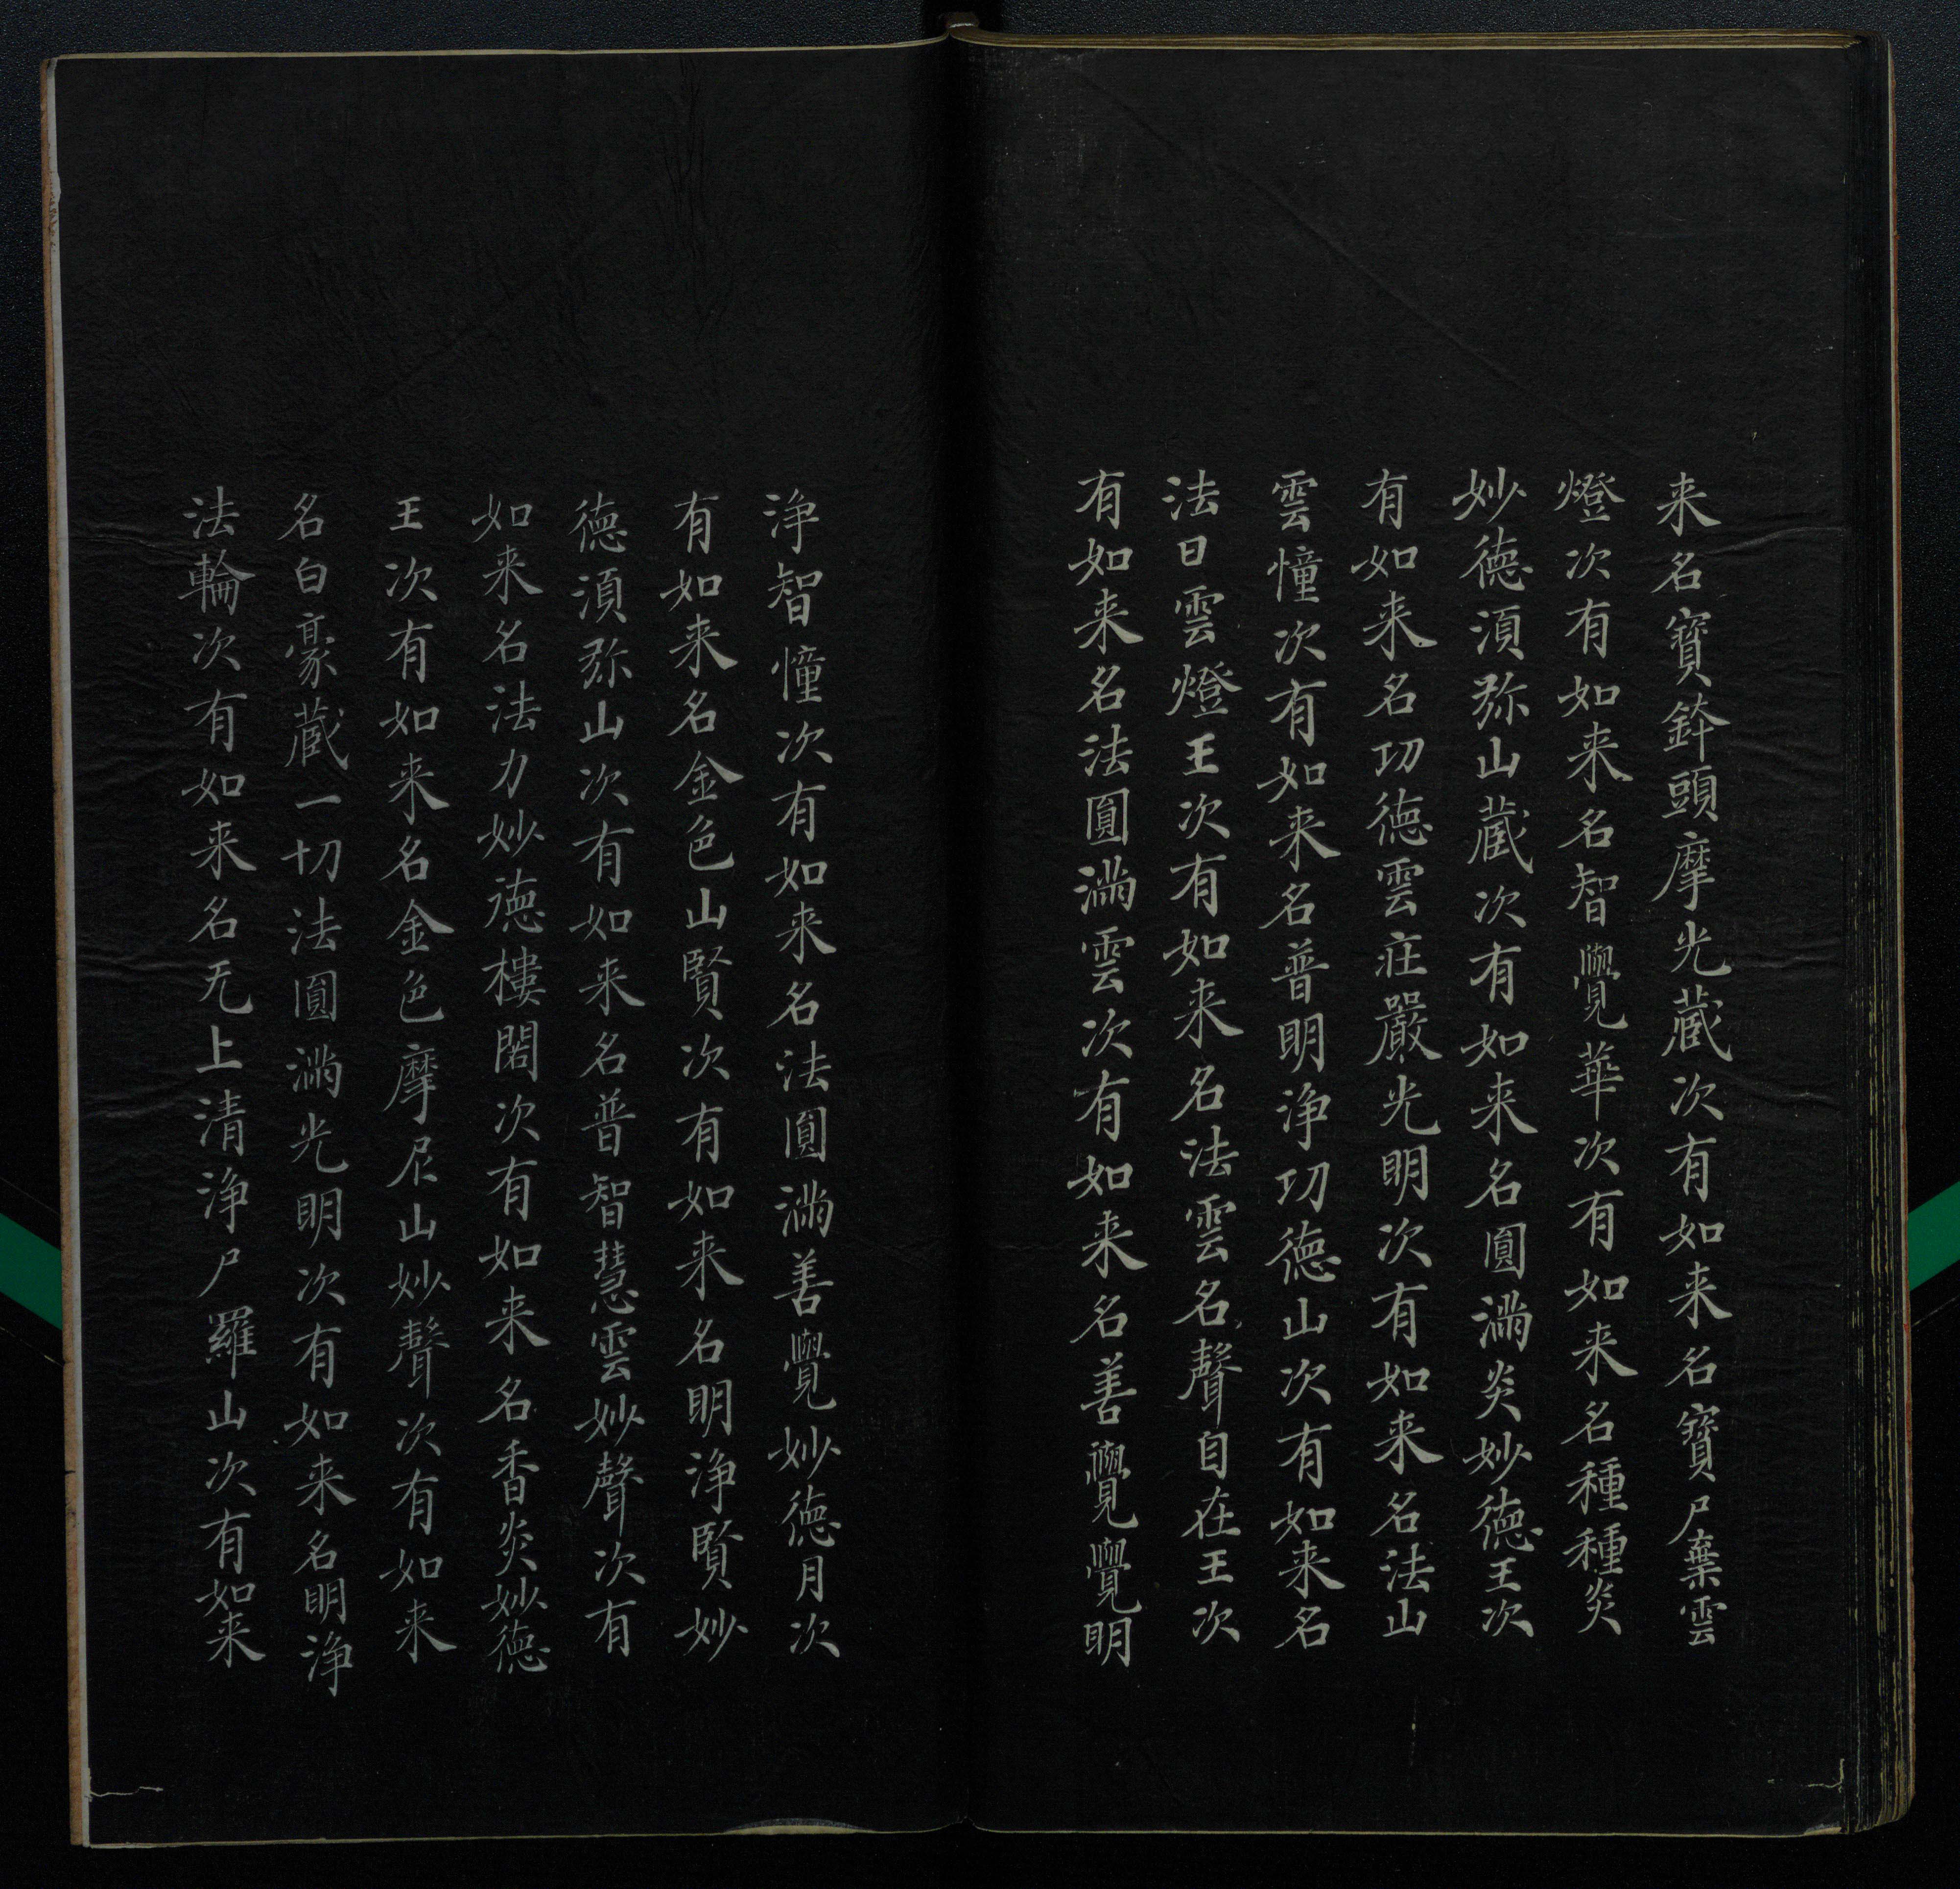 来名寳鉢頭摩光蔵次有如来名寳尸棄雲
燈次有如来名智覺華次有如来名種種炎
妙德湏弥山蔵次有如来名圓滿炎妙德王次
有如来名功德雲莊嚴光明次有如来名法山
雲憧次有如来名普明浄功德山次有如来名
法日雲燈王次有如来名法雲名聲自在王次
有如来名法圓滿雲次有如来名善覺覺明
浄智憧次有如来名法圓滿善覺妙德月次
有如来名金色山賢次有如来名明浄賢妙
德湏弥山次有如来名普智慧雲妙聲次有
如来名法力妙德樓閣次有如来名香炎妙德
王次有如来名金色摩尼山妙聲次有如来
名白豪蔵一切法圓滿光明次有如来名明浄
法輪次有如来名无上清浄尸羅山次有如来